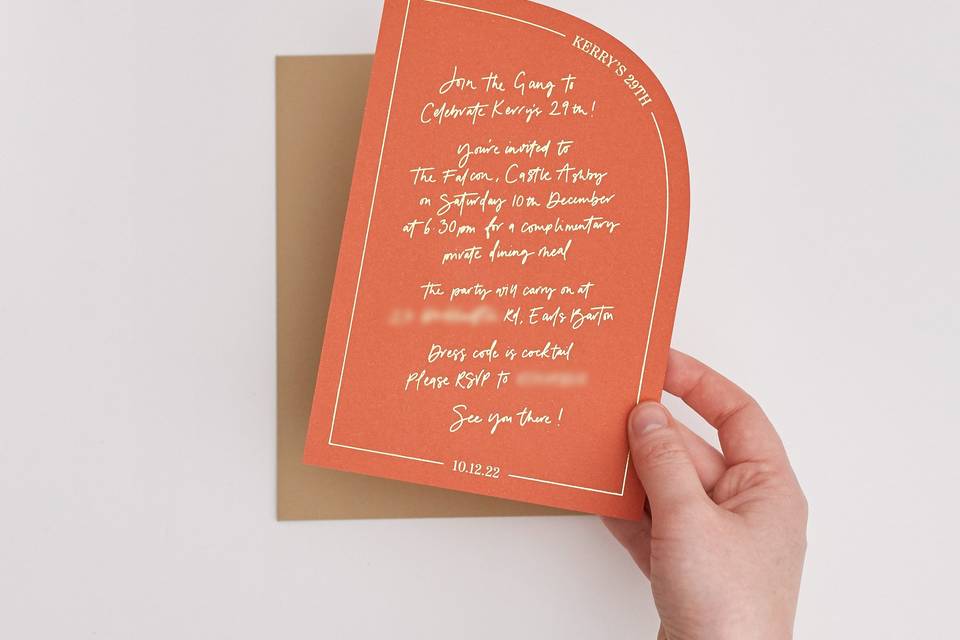 KERRY'S 29TH
Join the Gang to
Celebrate Kerry's 29th!
You're invited to
The Falcon, Castle Ashby
on Saturday 10th December
at 6.30pm for a complimentary
private dining meal
The party will carry on at
Rd, Earls Barton
Dress code is cocktail
Please RSVP to
See you there!
10.12.22